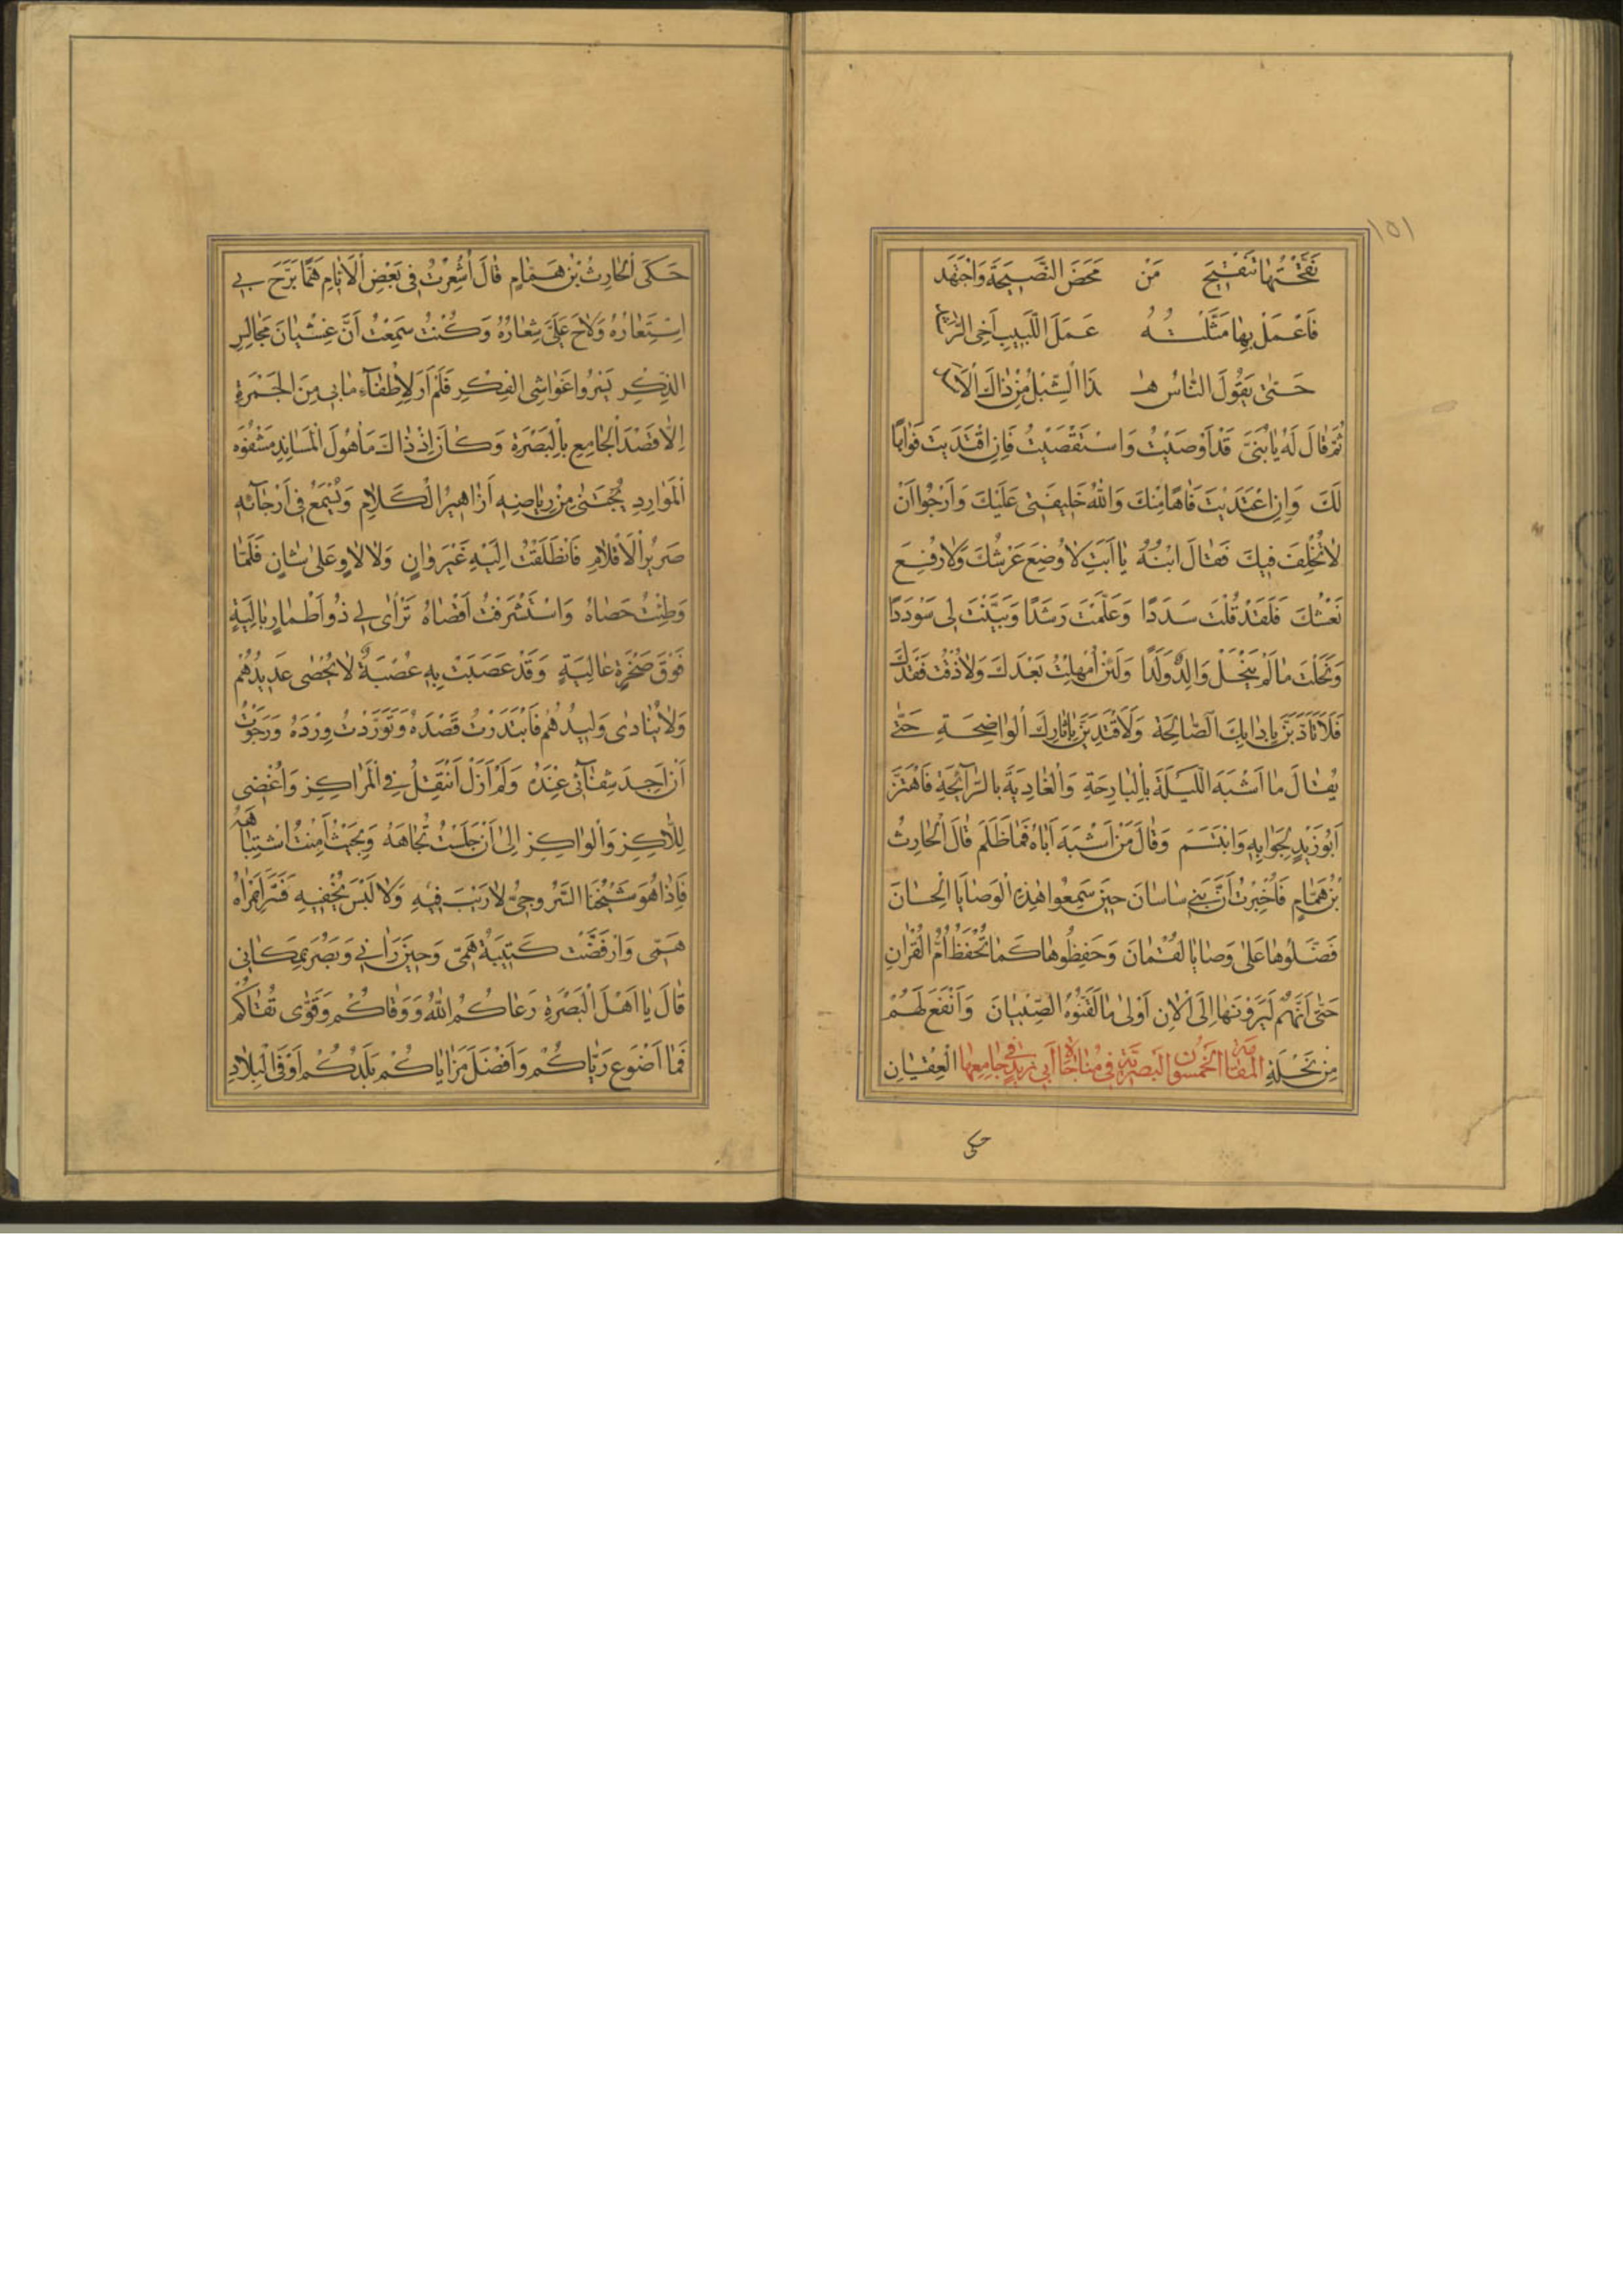 ١٥١
نَقَّحْتُهَا تَنْقِيحَ مَنْ مَحَضَ النَّصِيحَةَ وَاجْتَهَدَ
فَاعْمَلْ بِهَا مَثَّلْتُهُ عَمَلَ اللَّبِيبِ أَخِي الرَّشَدْ
حَتَّى يَقُولَ النَّاسُ هٰذَا الشِّبْلُ مِنْ ذَاكَ الْأَسَدْ
ثُمَّ قَالَ لَهُ يَا بُنَيَّ قَدْ أَوْصَيْتُ وَاسْتَقْصَيْتُ فَإِنِ اقْتَدَيْتَ فَوَاهًا
لَكَ وَإِنِ اعْتَدَيْتَ فَآهًا مِنْكَ وَاللّٰهُ خَلِيفَتِي عَلَيْكَ وَأَرْجُو أَنْ
لَا تُخْلِفَ فِيكَ فَقَالَ ابْنُهُ يَا أَبَتِ لَا وُضِعَ عَرْشُكَ وَلَا رُفِعَ
نَعْشُكَ فَلَقَدْ قُلْتَ سَدَدًا وَعَلَّمْتَ رَشَدًا وَبَيَّنْتَ لِي سَوْدَدًا
وَنَحَلْتَ مَا لَمْ يَنْحَلْ وَالِدٌ وَلَدًا وَلَئِنْ أُمْهِلْتُ بَعْدَكَ وَلَا ذُقْتُ فَقْدَكَ
فَلَأَتَأَدَّبَنَّ بِآدَابِكَ الصَّالِحَةِ وَلَأَقْتَدِيَنَّ بِآثَارِكَ الْوَاضِحَةِ حَتَّى
يُقَالَ مَا أَشْبَهَ اللَّيْلَةَ بِالْبَارِحَةِ وَالْغَادِيَةَ بِالرَّائِحَةِ فَاهْتَزَّ
أَبُو زَيْدٍ لِجَوَابِهِ وَابْتَسَمَ وَقَالَ مَنْ أَشْبَهَ أَبَاهُ فَمَا ظَلَمَ قَالَ الْحَارِثُ
بْنُ هَمَّامٍ فَأُخْبِرْتُ أَنَّ بَنِي سَاسَانَ حِينَ سَمِعُوا هٰذِهِ الْوَصَايَا الْحِسَانَ
فَضَّلُوهَا عَلَى وَصَايَا لُقْمَانَ وَحَفِظُوهَا كَمَا تُحْفَظُ أُمُّ الْقُرْآنِ
حَتَّى أَنَّهُمْ لَيَرَوْنَهَا إِلَى الْآنَ أَوْلَى مَا لَقَّنُوهُ الصِّبْيَانَ وَأَنْفَعَ لَهُمْ
مِنْ نَحْلَةِ الْعِقْيَانِ المقامة الخمسون البصرية في مناجاة أبي زيد في جامعها
حكى
حَكَى الْحَارِثُ بْنُ هَمَّامٍ قَالَ أُشْعِرْتُ فِي بَعْضِ الْأَيَّامِ هَمًّا بَرَّحَ بِي
اسْتِعَارُهُ وَلَاحَ عَلَيَّ شِعَارُهُ وَكُنْتُ سَمِعْتُ أَنَّ غِشْيَانَ مَجَالِسِ
الذِّكْرِ يَسْرُو غَوَاشِيَ الْفِكْرِ فَلَمْ أَرَ لِإِطْفَاءِ مَا بِي مِنَ الْجَمْرَةِ
إِلَّا قَصْدَ الْجَامِعِ بِالْبَصْرَةِ وَكَانَ إِذْ ذَاكَ مَأْهُولَ الْمَسَانِدِ مَشْفُوهَ
الْمَوَارِدِ يُجْتَنَى مِنْ رِيَاضِهِ أَزَاهِيرُ الْكَلَامِ وَيُسْمَعُ فِي أَرْجَائِهِ
صَرِيرُ الْأَقْلَامِ فَانْطَلَقْتُ إِلَيْهِ غَيْرَ وَانٍ وَلَا لَاوٍ عَلَى شَانٍ فَلَمَّا
وَطِئْتُ حَصَاهُ وَاسْتَشْرَفْتُ أَقْصَاهُ تَرَاءَى لِي ذُو أَطْمَارٍ بَالِيَةٍ
فَوْقَ صَخْرَةٍ عَالِيَةٍ وَقَدْ عَصَبَتْ بِهِ عُصْبَةٌ لَا يُحْصَى عَدِيدُهُمْ
وَلَا يُنَادَى وَلِيدُهُمْ فَابْتَدَرْتُ قَصْدَهُ وَتَوَرَّدْتُ وِرْدَهُ وَرَجَوْتُ
أَنْ أَجِدَ شِفَائِي عِنْدَهُ وَلَمْ أَزَلْ أَنْتَقِلُ فِي الْمَرَاكِزِ وَأُغْضِي
لِلَّاكِزِ وَالْوَاكِزِ إِلَى أَنْ جَلَسْتُ تُجَاهَهُ وَبِحَيْثُ أَمِنْتُ اشْتِبَاهَهُ
فَإِذَا هُوَ شَيْخُنَا السَّرُوجِيُّ لَا رَيْبَ فِيهِ وَلَا لَبْسَ يُخْفِيهِ فَتَسَرَّى بِمَرْآهُ
هَمِّي وَارْفَضَّتْ كَتِيبَةُ هَمِّي وَحِينَ رَآنِي وَبَصُرَ بِمَكَانِي
قَالَ يَا أَهْلَ الْبَصْرَةِ رَعَاكُمُ اللّٰهُ وَوَقَاكُمْ وَقَوَّى تُقَاكُمْ
فَمَا أَضْوَعَ رَيَّاكُمْ وَأَفْضَلَ مَزَايَاكُمْ بَلَدُكُمْ أَوْفَى الْبِلَادِ